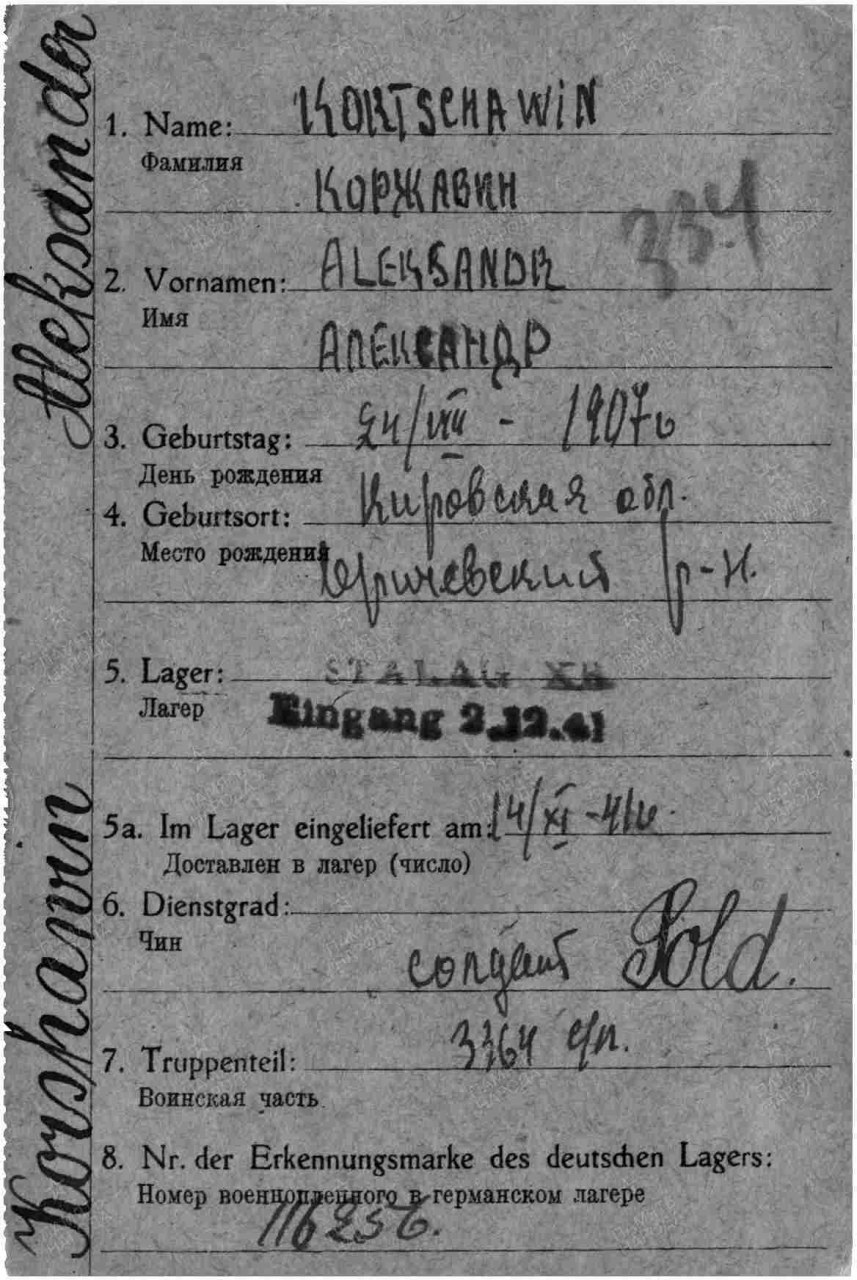 Korshawin Aleksander
1. Name: KORTSCHAWIN
Фамилия
КОРЖАВИН
334
2. Vornamen: ALEKSANDR
Имя
АЛЕКСАНДР
3. Geburtstag: 24/VIII - 1907г
День рождения
4. Geburtsort: Кировская обл.
Место рождения Юричевский р-н.
5. Lager: STALAG XB
Лагер Eingang 2.12.41
5a. Im Lager eingeliefert am: 14/XI-41г.
Доставлен в лагер (число)
6. Dienstgrad:
Чин
солдат Sold.
7. Truppenteil: 3364 с/п.
Воинская часть
8. Nr. der Erkennungsmarke des deutschen Lagers:
Номер военнопленного в германском лагере